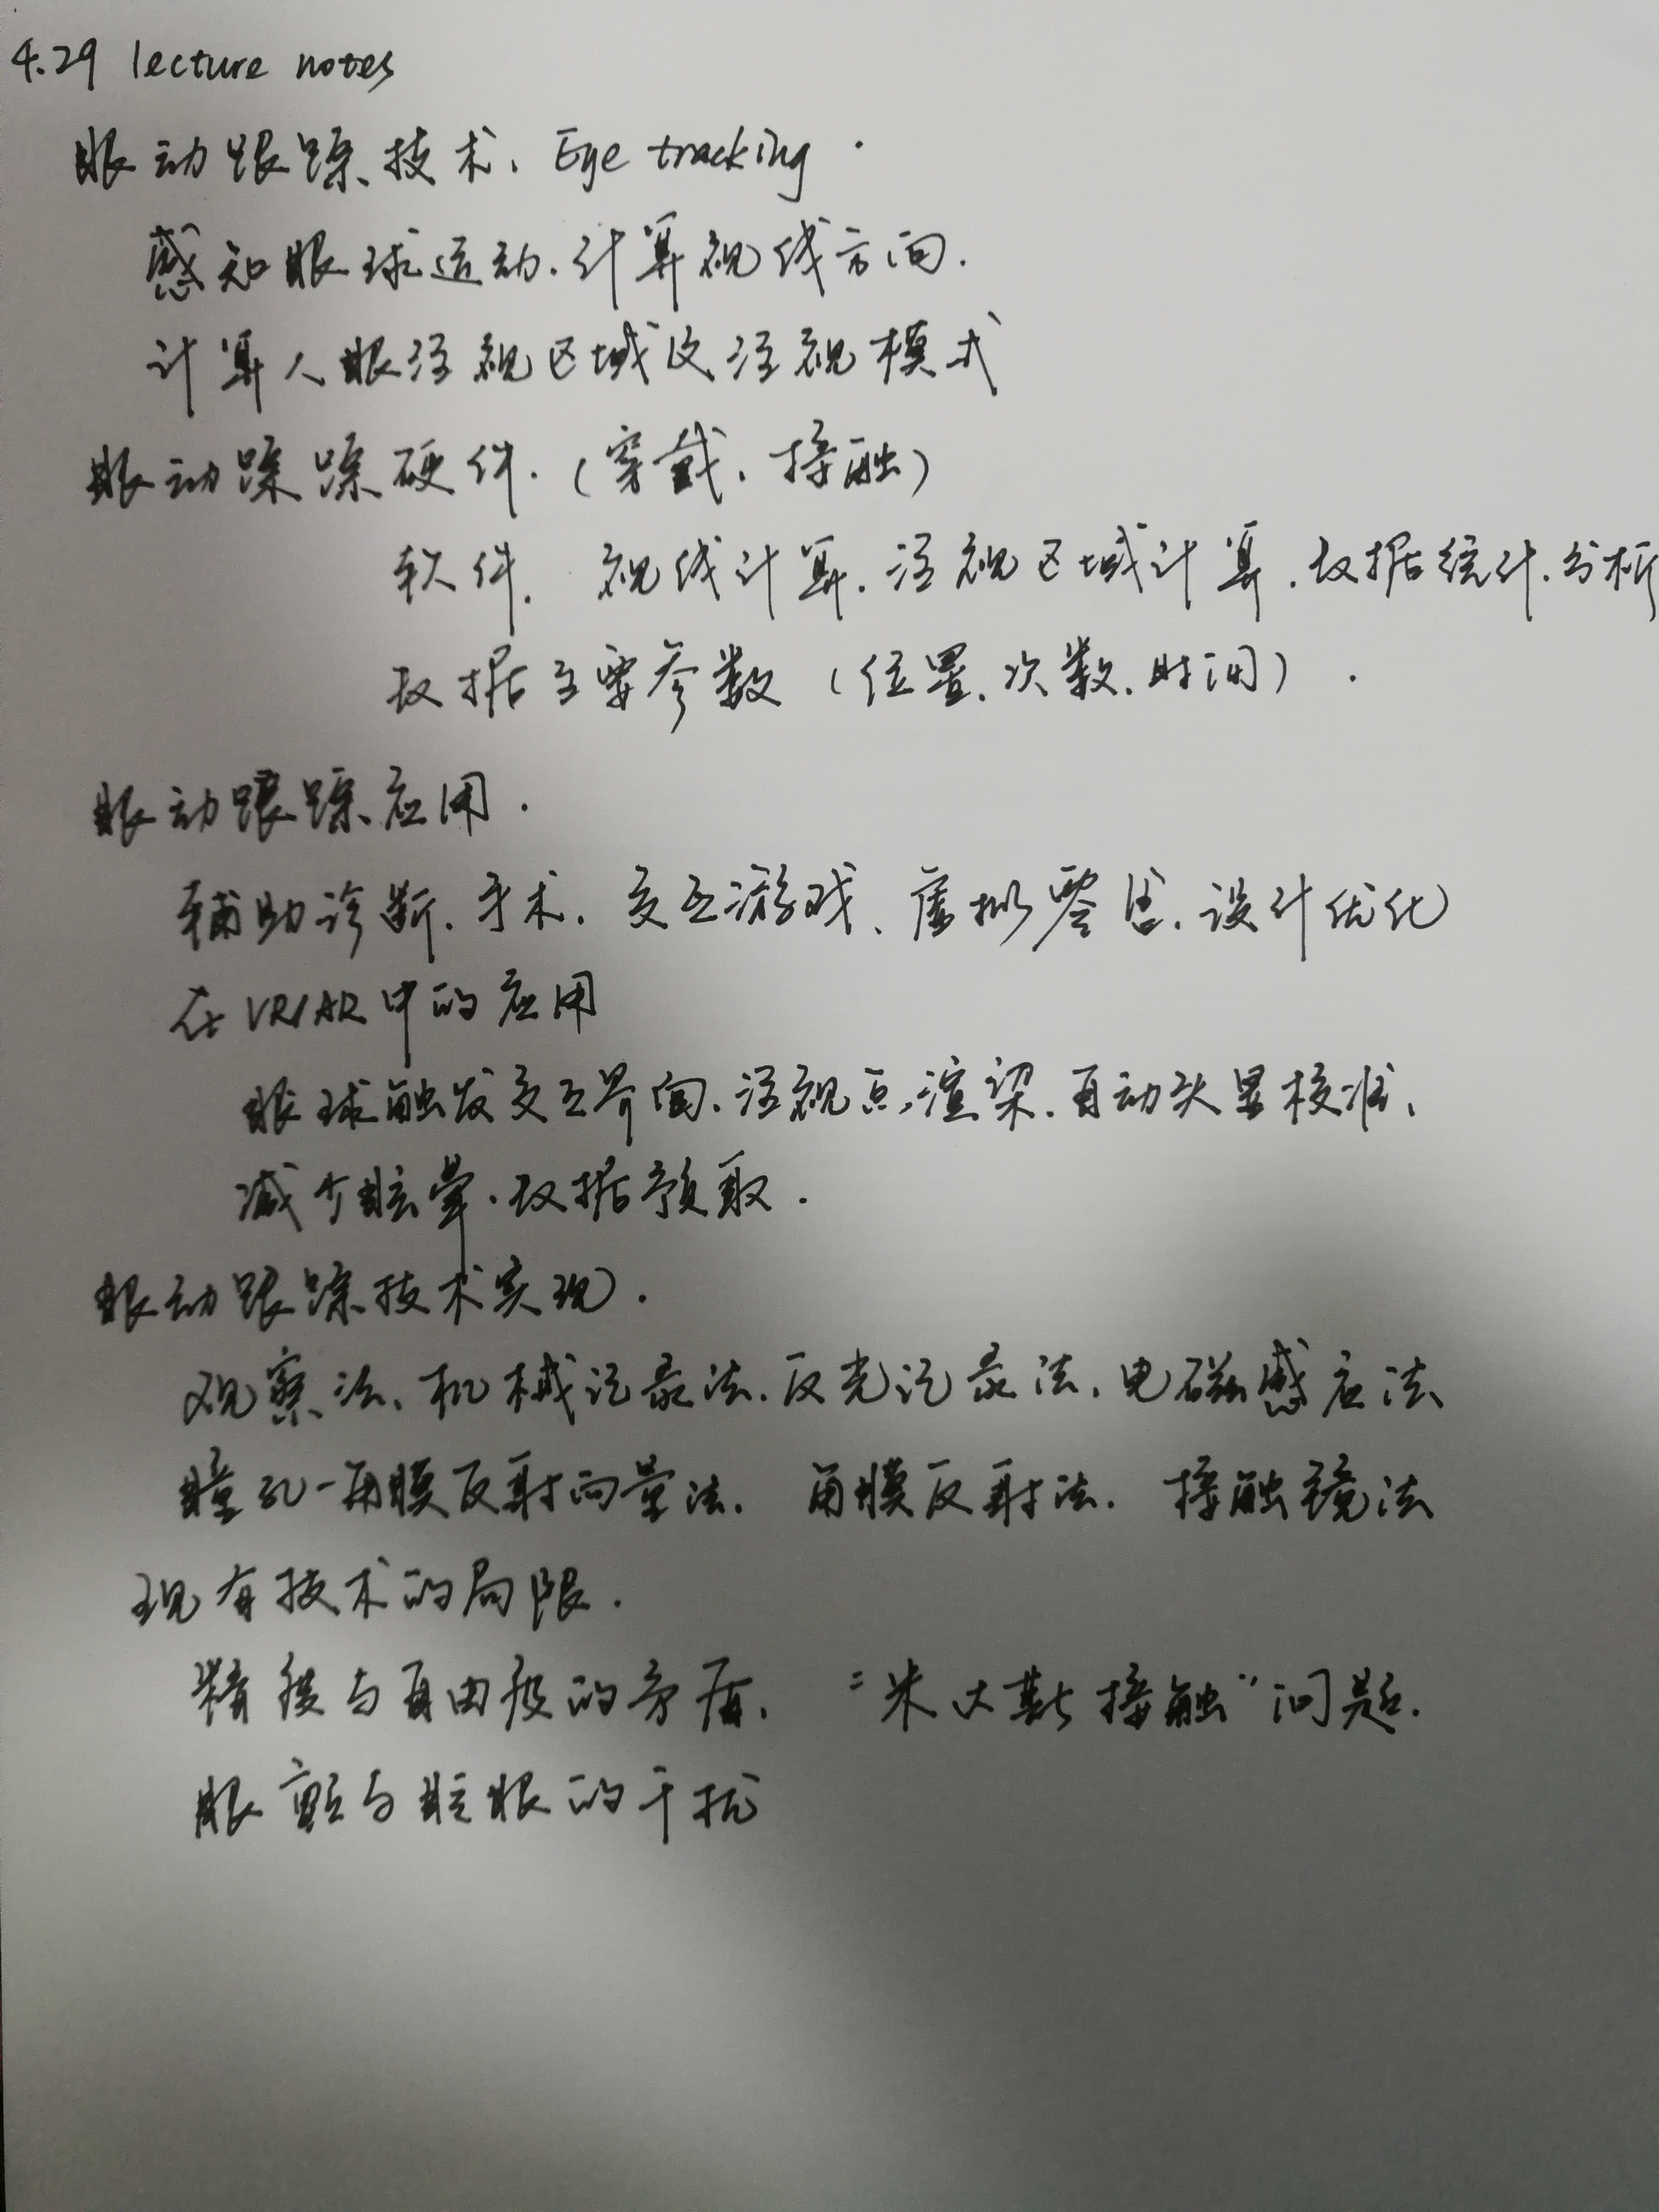 4.29 lecture notes
眼动跟踪技术. Eye tracking .
感知眼球运动.计算视线方向.
计算人眼注视区域及注视模式
眼动踪踪硬件.(穿戴.接触)
软件. 视线计算.注视区域计算.数据统计.分析
数据主要参数(位置.次数.时间) .
眼动跟踪应用.
辅助诊断.手术.交互游戏、虚拟零售.设计优化
在VR/AR中的应用
眼球触发交互界面.注视点渲染.自动头显校准.
减少眩晕.数据预取.
眼动跟踪技术实现.
观察法.机械记录法.反光记录法.电磁感应法
瞳孔-角膜反射向量法. 角膜反射法. 接触镜法
现有技术的局限.
精度与自由度的矛盾. "米达斯接触"问题.
眼颤与眨眼的干扰